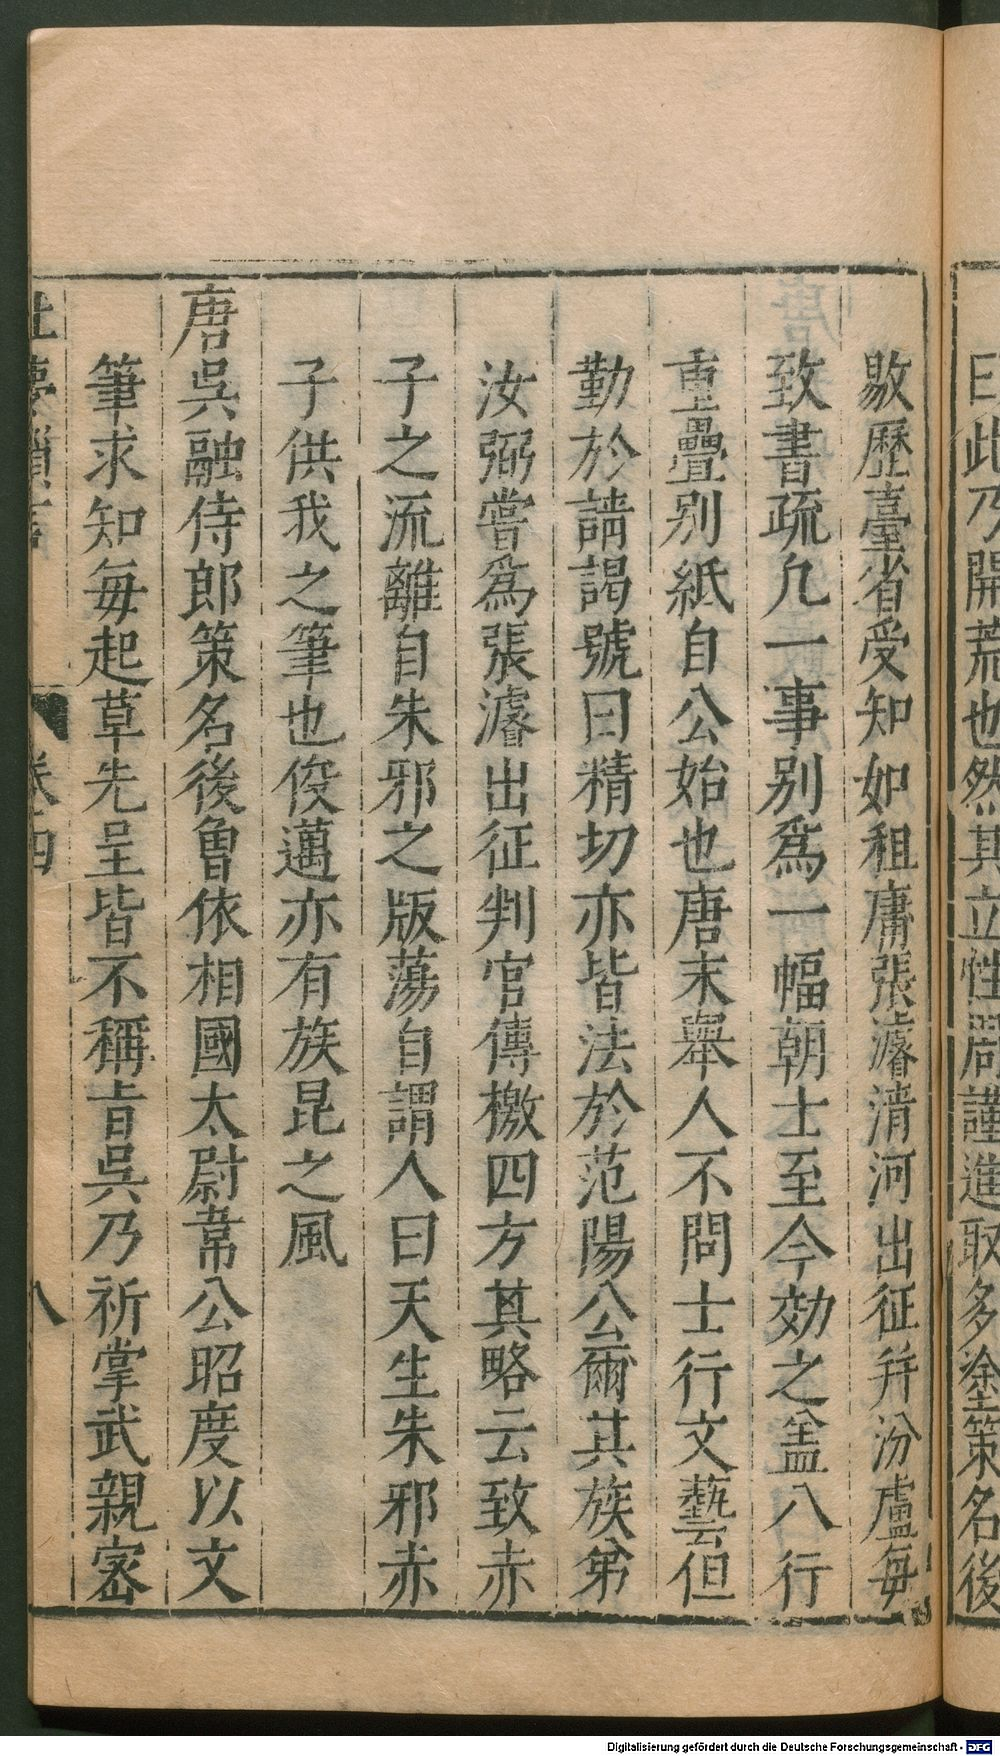 曰此乃開荒也然其立性周謹進取多塗策名後
敭歷臺省受知如租庸張濬清河出征并汾盧每
致書疏凢一事别爲一幅朝士至今効之盖八行
重疊别紙自公始也唐末舉人不問士行文藝但
勤於請謁號曰精切亦皆法於范陽公爾其族弟
汝弼嘗爲張濬出征判官傳檄四方其略云致赤
子之流離自朱邪之版蕩自謂人曰天生朱邪赤
子供我之筆也俊邁亦有族昆之風
唐吳融侍郎策名後曾依相國太尉韋公昭度以文
筆求知每起草先呈皆不稱旨吳乃祈掌武親密
夢瑣言
卷四
八
Digitalisierung gefördert durch die Deutsche Forschungsgemeinschaft - DFG